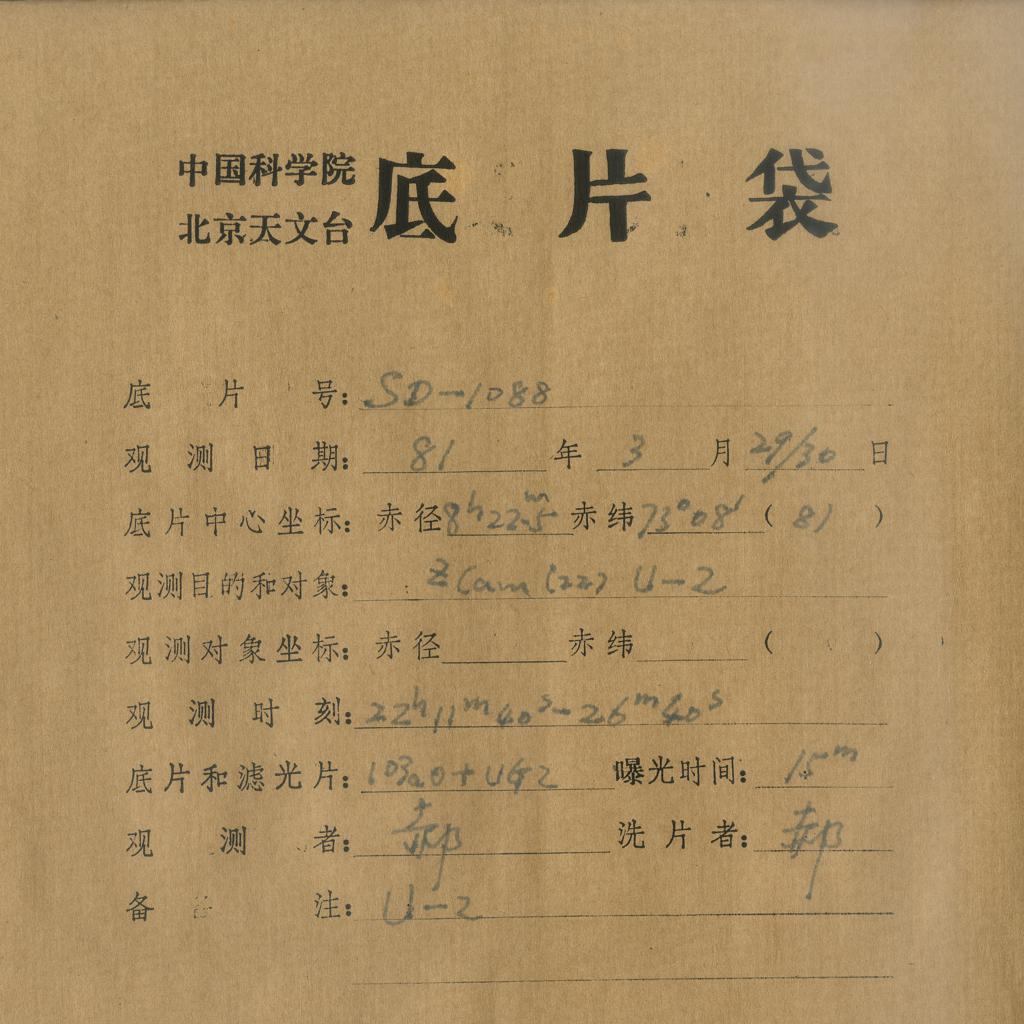 中国科学院
北京天文台
底片袋
底片号: SD-1088
观测日期: 81年3月29/30日
底片中心坐标: 赤径8h22m.5赤纬73°08′(81)
观测目的和对象: Z Cam (22) U-2
观测对象坐标: 赤径 赤纬 ( )
观测时刻: 22h11m40s-26m40s
底片和滤光片: 103aO+UG2 曝光时间: 15m
观测者: 郝 洗片者: 郝
备注: U-2